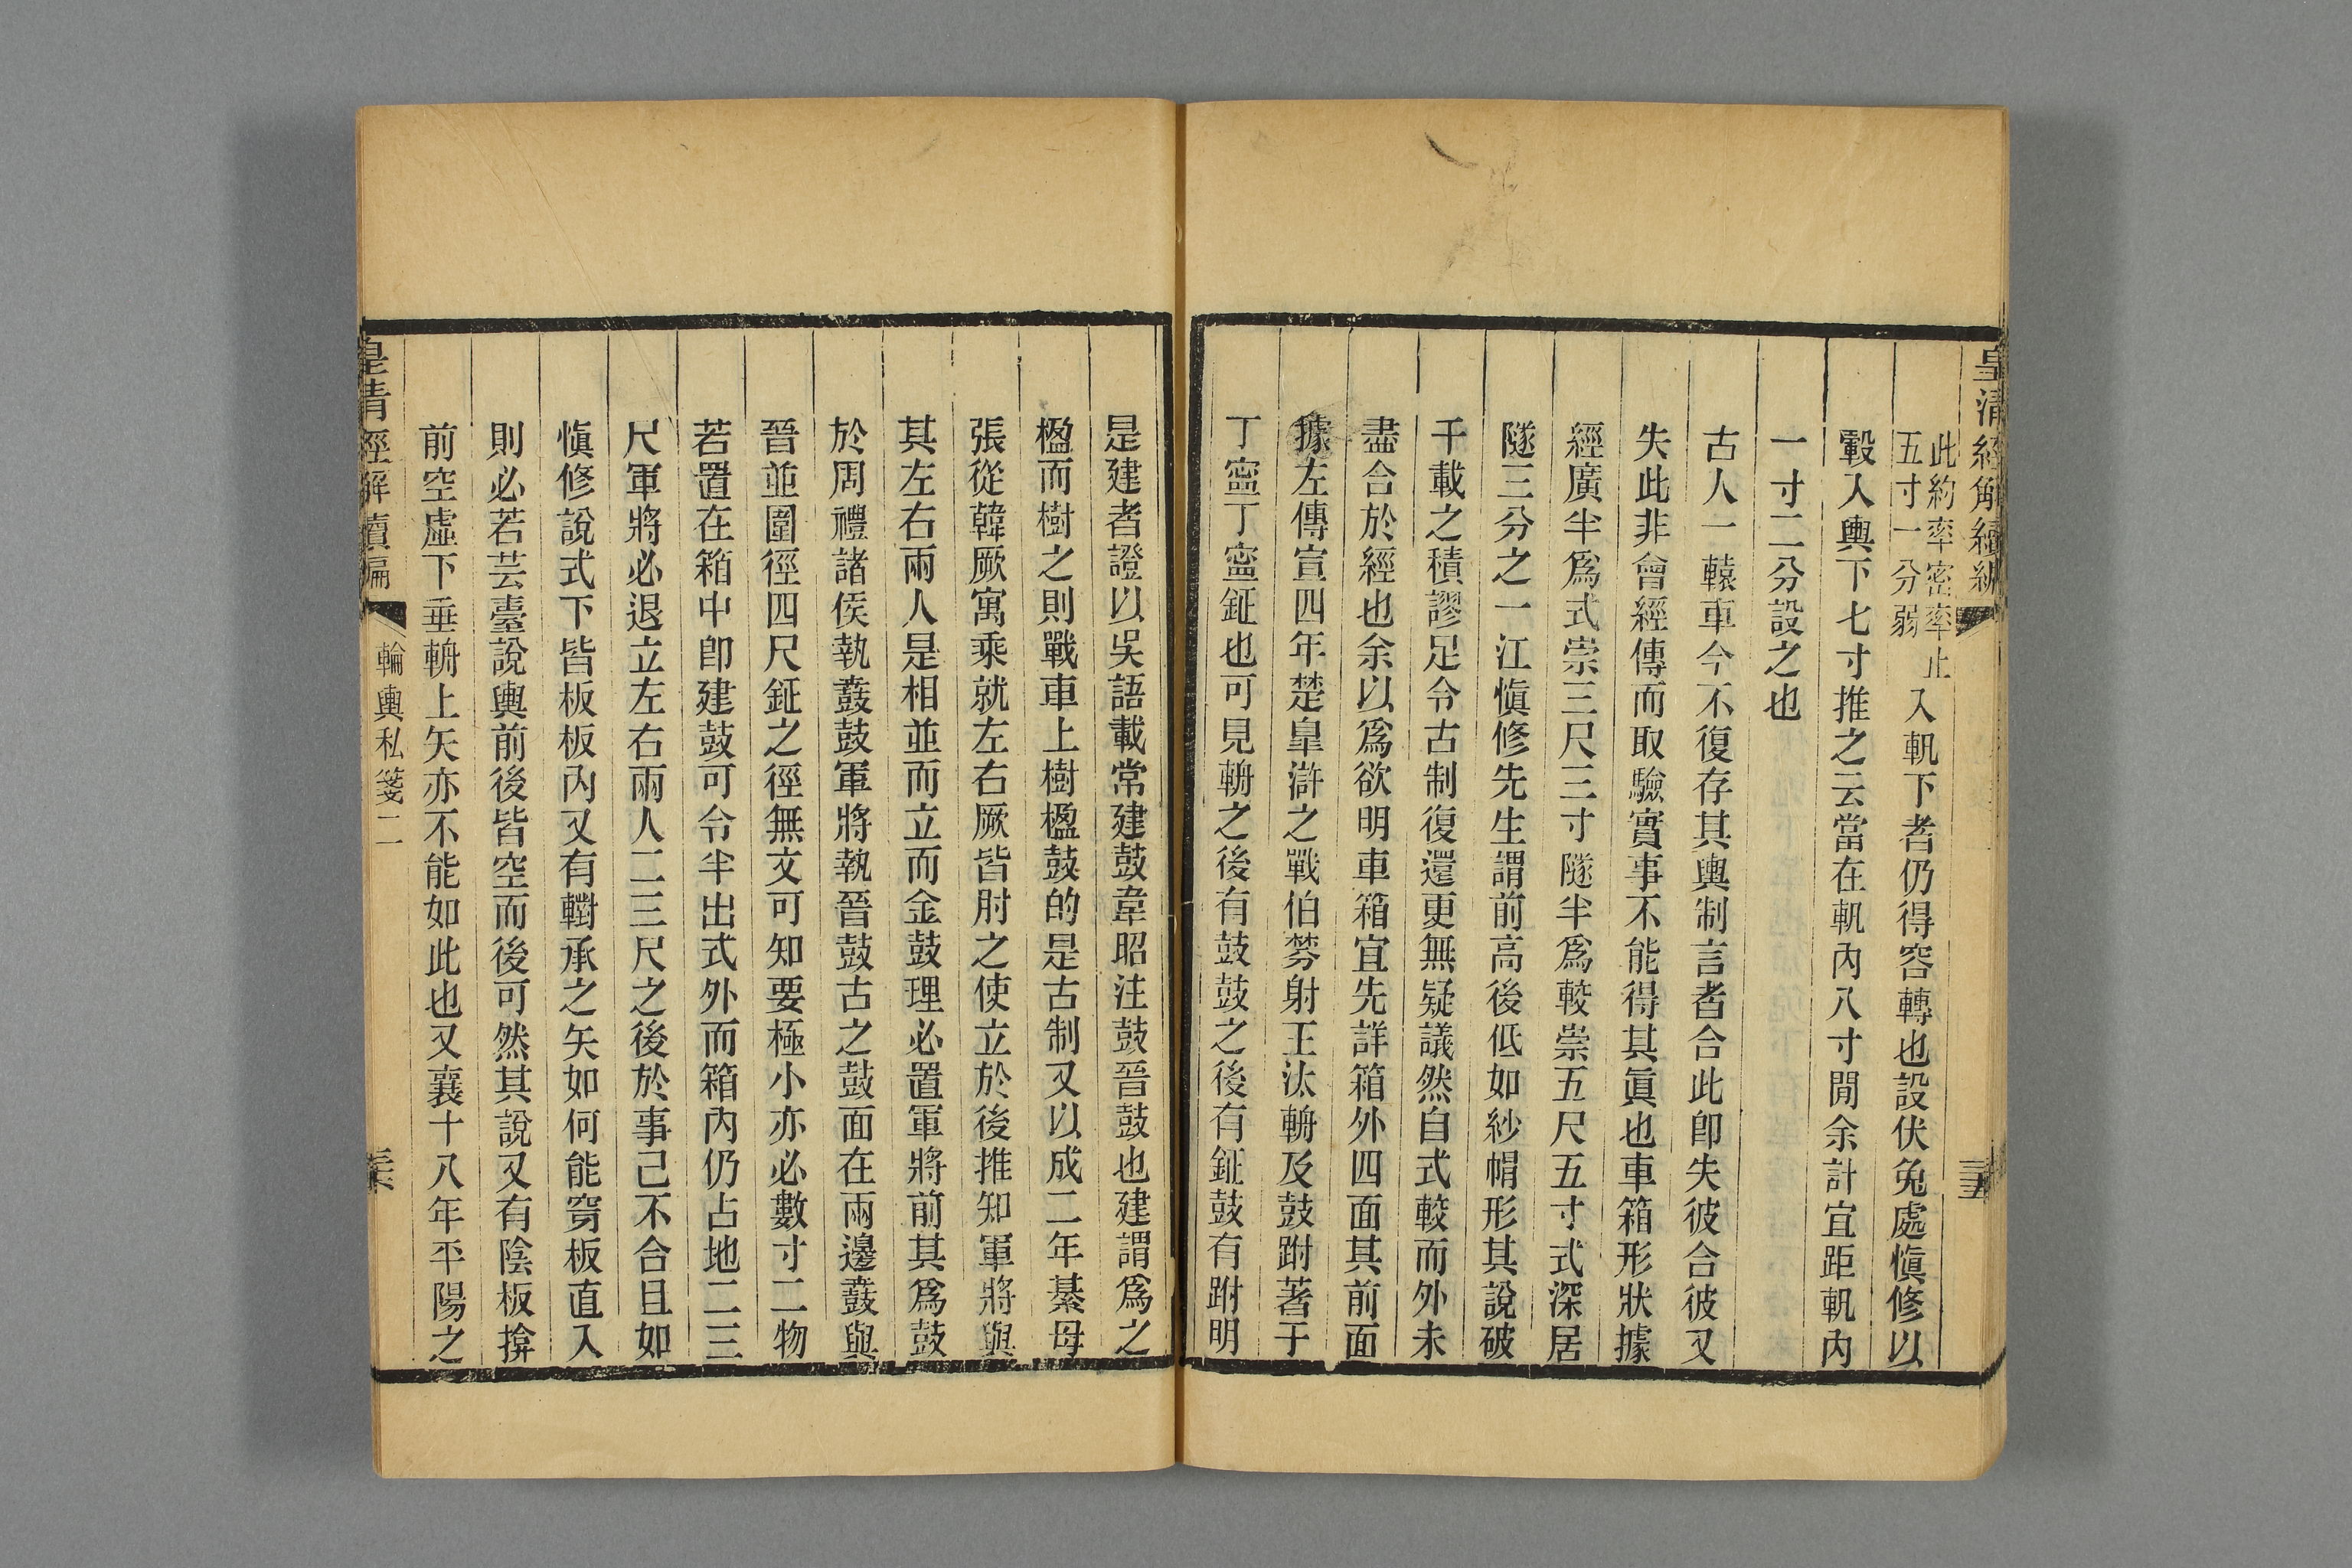 皇清經解續編
此約率密率止
五寸一分弱
入軓下者仍得容轉也設伏兔處愼修以
轂入輿下七寸推之云當在軓內八寸閒余計宜距軓內
一寸二分設之也
古人一轅車今不復存其輿制言者合此卽失彼合彼又
失此非會經傳而取驗實事不能得其眞也車箱形狀據
經廣半爲式崇三尺三寸隧半爲較崇五尺五寸式深居
隧三分之一江愼修先生謂前高後低如紗帽形其說破
千載之積謬足令古制復還更無疑議然自式較而外未
盡合於經也余以爲欲明車箱宜先詳箱外四面其前面
據左傳宣四年楚皐滸之戰伯棼射王汰輈及鼓跗著于
丁寍丁寍鉦也可見輈之後有鼓鼓之後有鉦鼓有跗明
是建者證以吳語載常建鼓韋昭注鼓晉鼓也建謂爲之
楹而樹之則戰車上樹楹鼓的是古制又以成二年綦母
張從韓厥寓乘就左右厥皆肘之使立於後推知軍將與
其左右兩人是相並而立而金鼓理必置軍將前其爲鼓
於周禮諸侯執鼖鼓軍將執晉鼓古之鼓面在兩邊鼖與
晉並圍徑四尺鉦之徑無文可知要極小亦必數寸二物
若置在箱中卽建鼓可令半出式外而箱內仍占地二三
尺軍將必退立左右兩人二三尺之後於事己不合且如
愼修說式下皆板板內又有轛承之矢如何能穿板直入
則必若芸臺說輿前後皆空而後可然其說又有陰板揜
前空虛下垂輈上矢亦不能如此也又襄十八年平陽之
皇清經解續編
輪輿私箋二